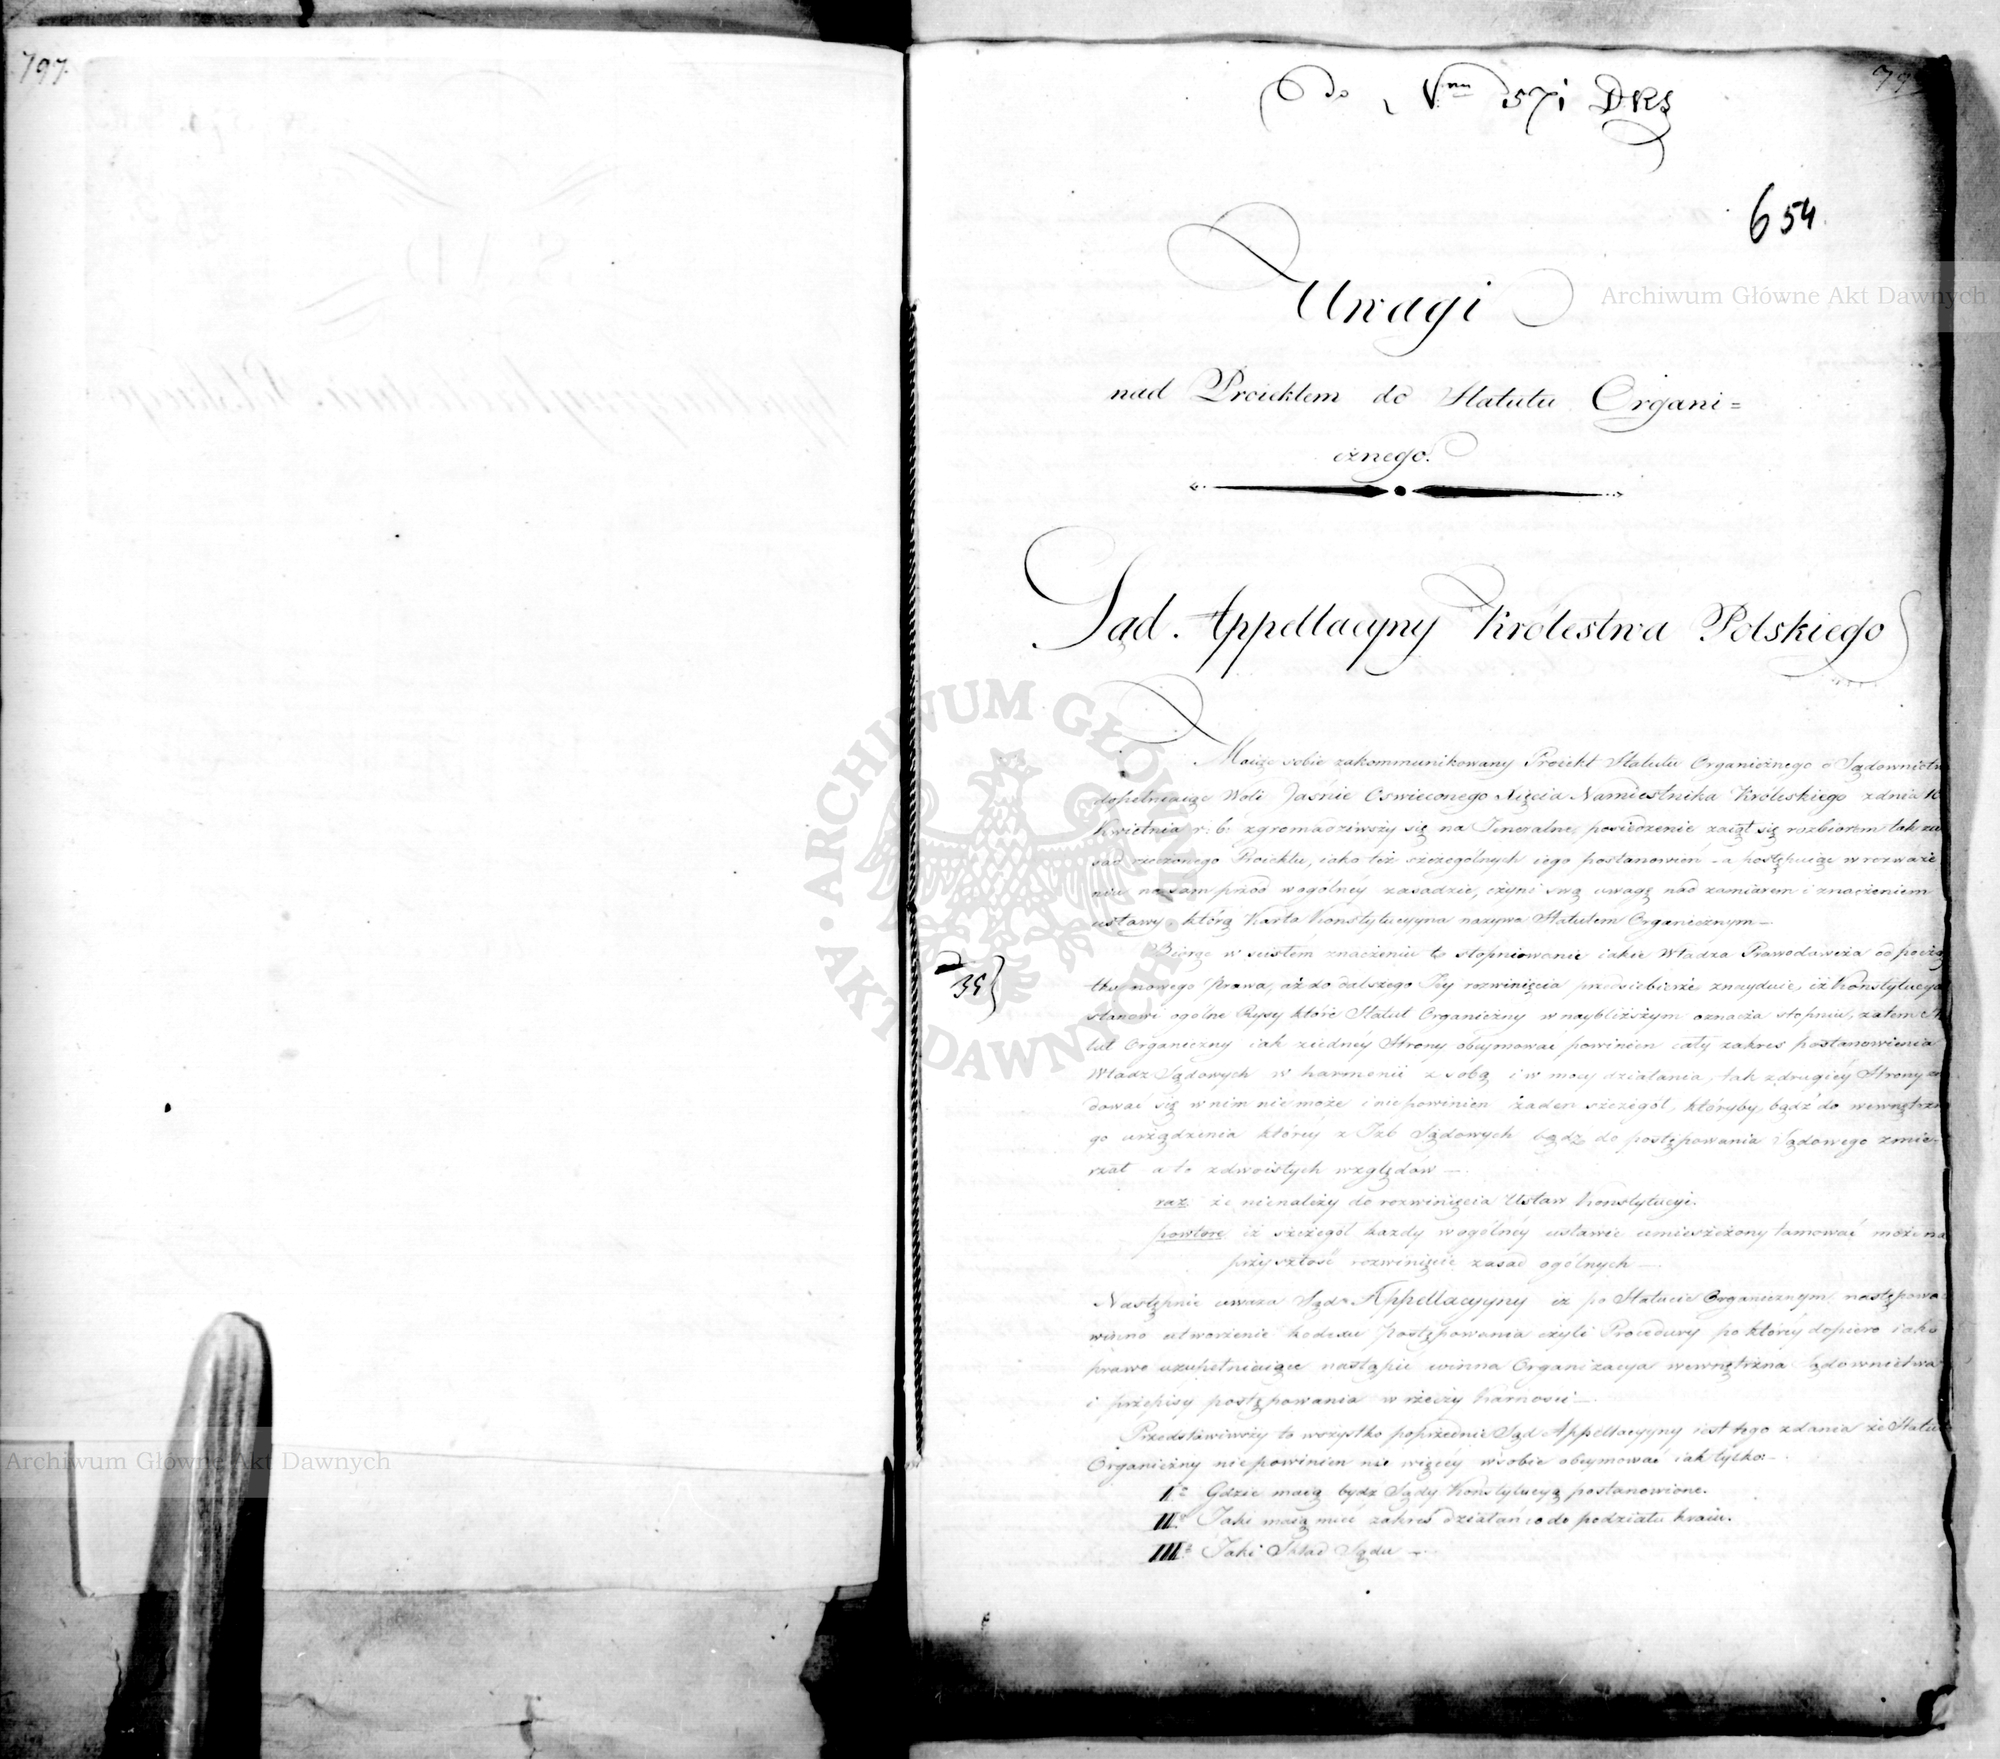 797.
Do Nrn 571 DRS
654.
Uwagi
nad Proiektem do Statutu Organi=
cznego.
Sąd Appellacyiny Królestwa Polskiego
Maiąc sobie zakommunikowany Proiekt Statutu Organicznego o Sądownictw
dopełniaiąc Woli Jasnie Oswieconego Xięcia Namiestnika Królewskiego z dnia 10
Kwietnia r: b: zgromadziwszy się na Jeneralne posiedzenie zaiął się rozbiorem tak za
sad rzeczonego Proiektu, iako też szczególnych iego postanowień – a postępuiąc w rozważe
niu na sam przód w ogólnéy zasadzie, czyni swą uwagę nad zamiarem i znaczeniem
ustawy, którą Karta Konstytucyyna nazywa Statutem Organicznym –
Biorąc w scisłem znaczeniu to stopniowanie iakie Władza Prawodawcza od począ
tku nowego Prawa, aż do dalszego Jey rozwinięcia przedsiębierze znayduie, iż Konstytucya
stanowi ogólne Rysy które Statut Organiczny w naybliższym oznacza stopniu, zatem Sta
tut Organiczny iak z iednéy Strony obeymować powinien cały zakres postanowienia
Władz Sądowych w harmonii z sobą i w mocy działania, tak z drugiéy Strony zn
dować się w nim nie może i nie powinien żaden szczegół, któryby, bądź do wewnętrzne
go urządzenia któréy z Izb Sądowych bądź do postępowania Sądowego zmie-
rzał a to z dwoistych względów –
raz: że nienależy do rozwinięcia Ustaw Konstytucyi.
powtóre iż szczegół każdy w ogólnéy ustawie umieszczony tamować może na
przyszłość rozwinięcie zasad ogólnych –
Następnie uważa Sąd Appellacyiny iż po Statucie Organicznym następowa
winno utworzenie kodexu Postępowania czyli Procedury po któréy dopiero iako
prawo uzupełniaiące nastąpić winna Organizacya wewnętrzna Sądownictwa
i przepisy postępowania w rzeczy Karnosci –
Przedstawiwszy to wszystko poprzednie Sąd Appellacyiny iest tego zdania że Statut
Organiczny nie powinien nic więcéy w sobie obeymować iak tylko: –
I° Gdzie maią bydź Sądy Konstytucyą postanowione.
II° Jaki maią mieć zakres działań co do podziału kraiu.
III° Jaki Skład Sądu –
Archiwum Główne Akt Dawnych
ARCHIWUM GŁÓWNE AKT DAWNYCH
Archiwum Główne Akt Dawnych